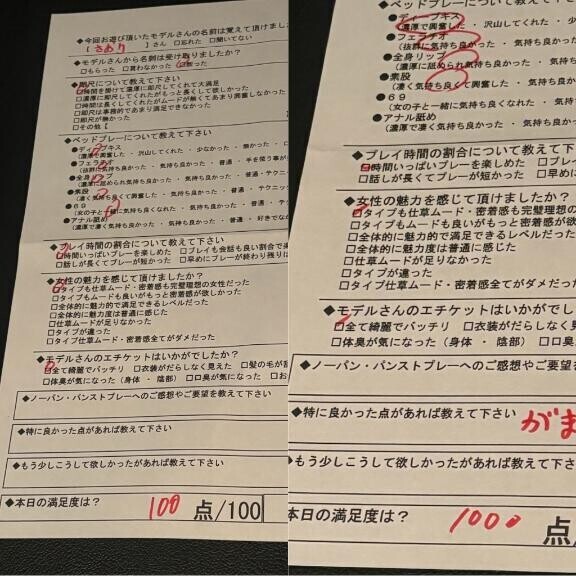 ◆今回お遊び頂いたモデルさんの名前は覚えて頂けました
【 さあり 】さん □忘れた □聞いてない
◆モデルさんから名刺は受け取りましたか?
□もらった □貰わなかった □断った
◆即尺について教えて下さい
□時間を掛けて濃厚に即尺してくれて大満足
□濃厚に即尺してくれたがもっと長くして欲しかった
□時間は長くしてくれたがムードが無くてあまり興奮しなかった
□即尺は事務的であまり満足できなかった
□即尺が無かった
□その他【
◆ベッドプレーについて教えて下さい
●ディープキス
(濃厚で興奮した ・ 沢山してくれた ・ 少なかった ・ 無かった ・
●フェラチオ
(抜群に気持ち良かった ・ 気持ち良かった ・ 普通 ・ 手を使う事が
●全身リップ
(濃厚に舐められ気持ち良かった ・ 気持ち良かった ・ 普通
●素股
(凄く気持ち良くて興奮した ・ 気持ち良かった ・ 普通 ・ テクニッ
●69
(女の子と一緒に気持ち良くなれた ・ 気持ち良かった ・ 普通
●アナル舐め
(濃厚で凄く気持ち良かった ・ 気持ち良かった ・ 普通 ・ 好きでな
◆プレイ時間の割合について教えて下さい
□時間いっぱいプレーを楽しめた □プレイも会話も良い割合で楽
□話しが長くてプレーが短かった □早めにプレーが終わり残りは
◆女性の魅力を感じて頂けましたか?
□タイプも仕草ムード・密着感も完璧理想の女性だった
□タイプもムードも良いがもっと密着感が欲しかった
□全体的に魅力的で満足できるレベルだった
□全体的に魅力度は普通に感じた
□仕草ムードが足りなかった
□タイプが違った
□タイプ仕草ムード・密着感全てがダメだった
◆モデルさんのエチケットはいかがでしたか?
□全て綺麗でバッチリ □衣装がだらしなく見えた □髪の毛が乱
□体臭が気になった(身体 ・ 陰部) □口臭が気になった □お
◆ノーパン・パンストプレーへのご感想やご要望を教えて下さい
◆特に良かった点があれば教えて下さい
◆もう少しこうして欲しかったがあれば教えて下さい
◆本日の満足度は? 100 点/100
◆ベッドプレーについて教えて下
●ディープキス
(濃厚で興奮した ・ 沢山してくれた ・ 少
●フェラチオ
(抜群に気持ち良かった ・ 気持ち良かった
●全身リップ
(濃厚に舐められ気持ち良かった ・ 気持
●素股
(凄く気持ち良くて興奮した ・ 気持ち良か
●69
(女の子と一緒に気持ち良くなれた ・ 気持
●アナル舐め
(濃厚で凄く気持ち良かった ・ 気持ち良か
◆プレイ時間の割合について教えて下
□時間いっぱいプレーを楽しめた □プレイ
□話しが長くてプレーが短かった □早めに
◆女性の魅力を感じて頂けましたか?
□タイプも仕草ムード・密着感も完璧理想の
□タイプもムードも良いがもっと密着感が欲
□全体的に魅力的で満足できるレベルだった
□全体的に魅力度は普通に感じた
□仕草ムードが足りなかった
□タイプが違った
□タイプ仕草ムード・密着感全てがダメだっ
◆モデルさんのエチケットはいかがでし
□全て綺麗でバッチリ □衣装がだらしなく見
□体臭が気になった(身体 ・ 陰部) □口臭
◆ノーパン・パンストプレーへのご感想やご要望
◆特に良かった点があれば教えて下さい がま
◆もう少しこうして欲しかったがあれば教えて下
本日の満足度は? 1000 点